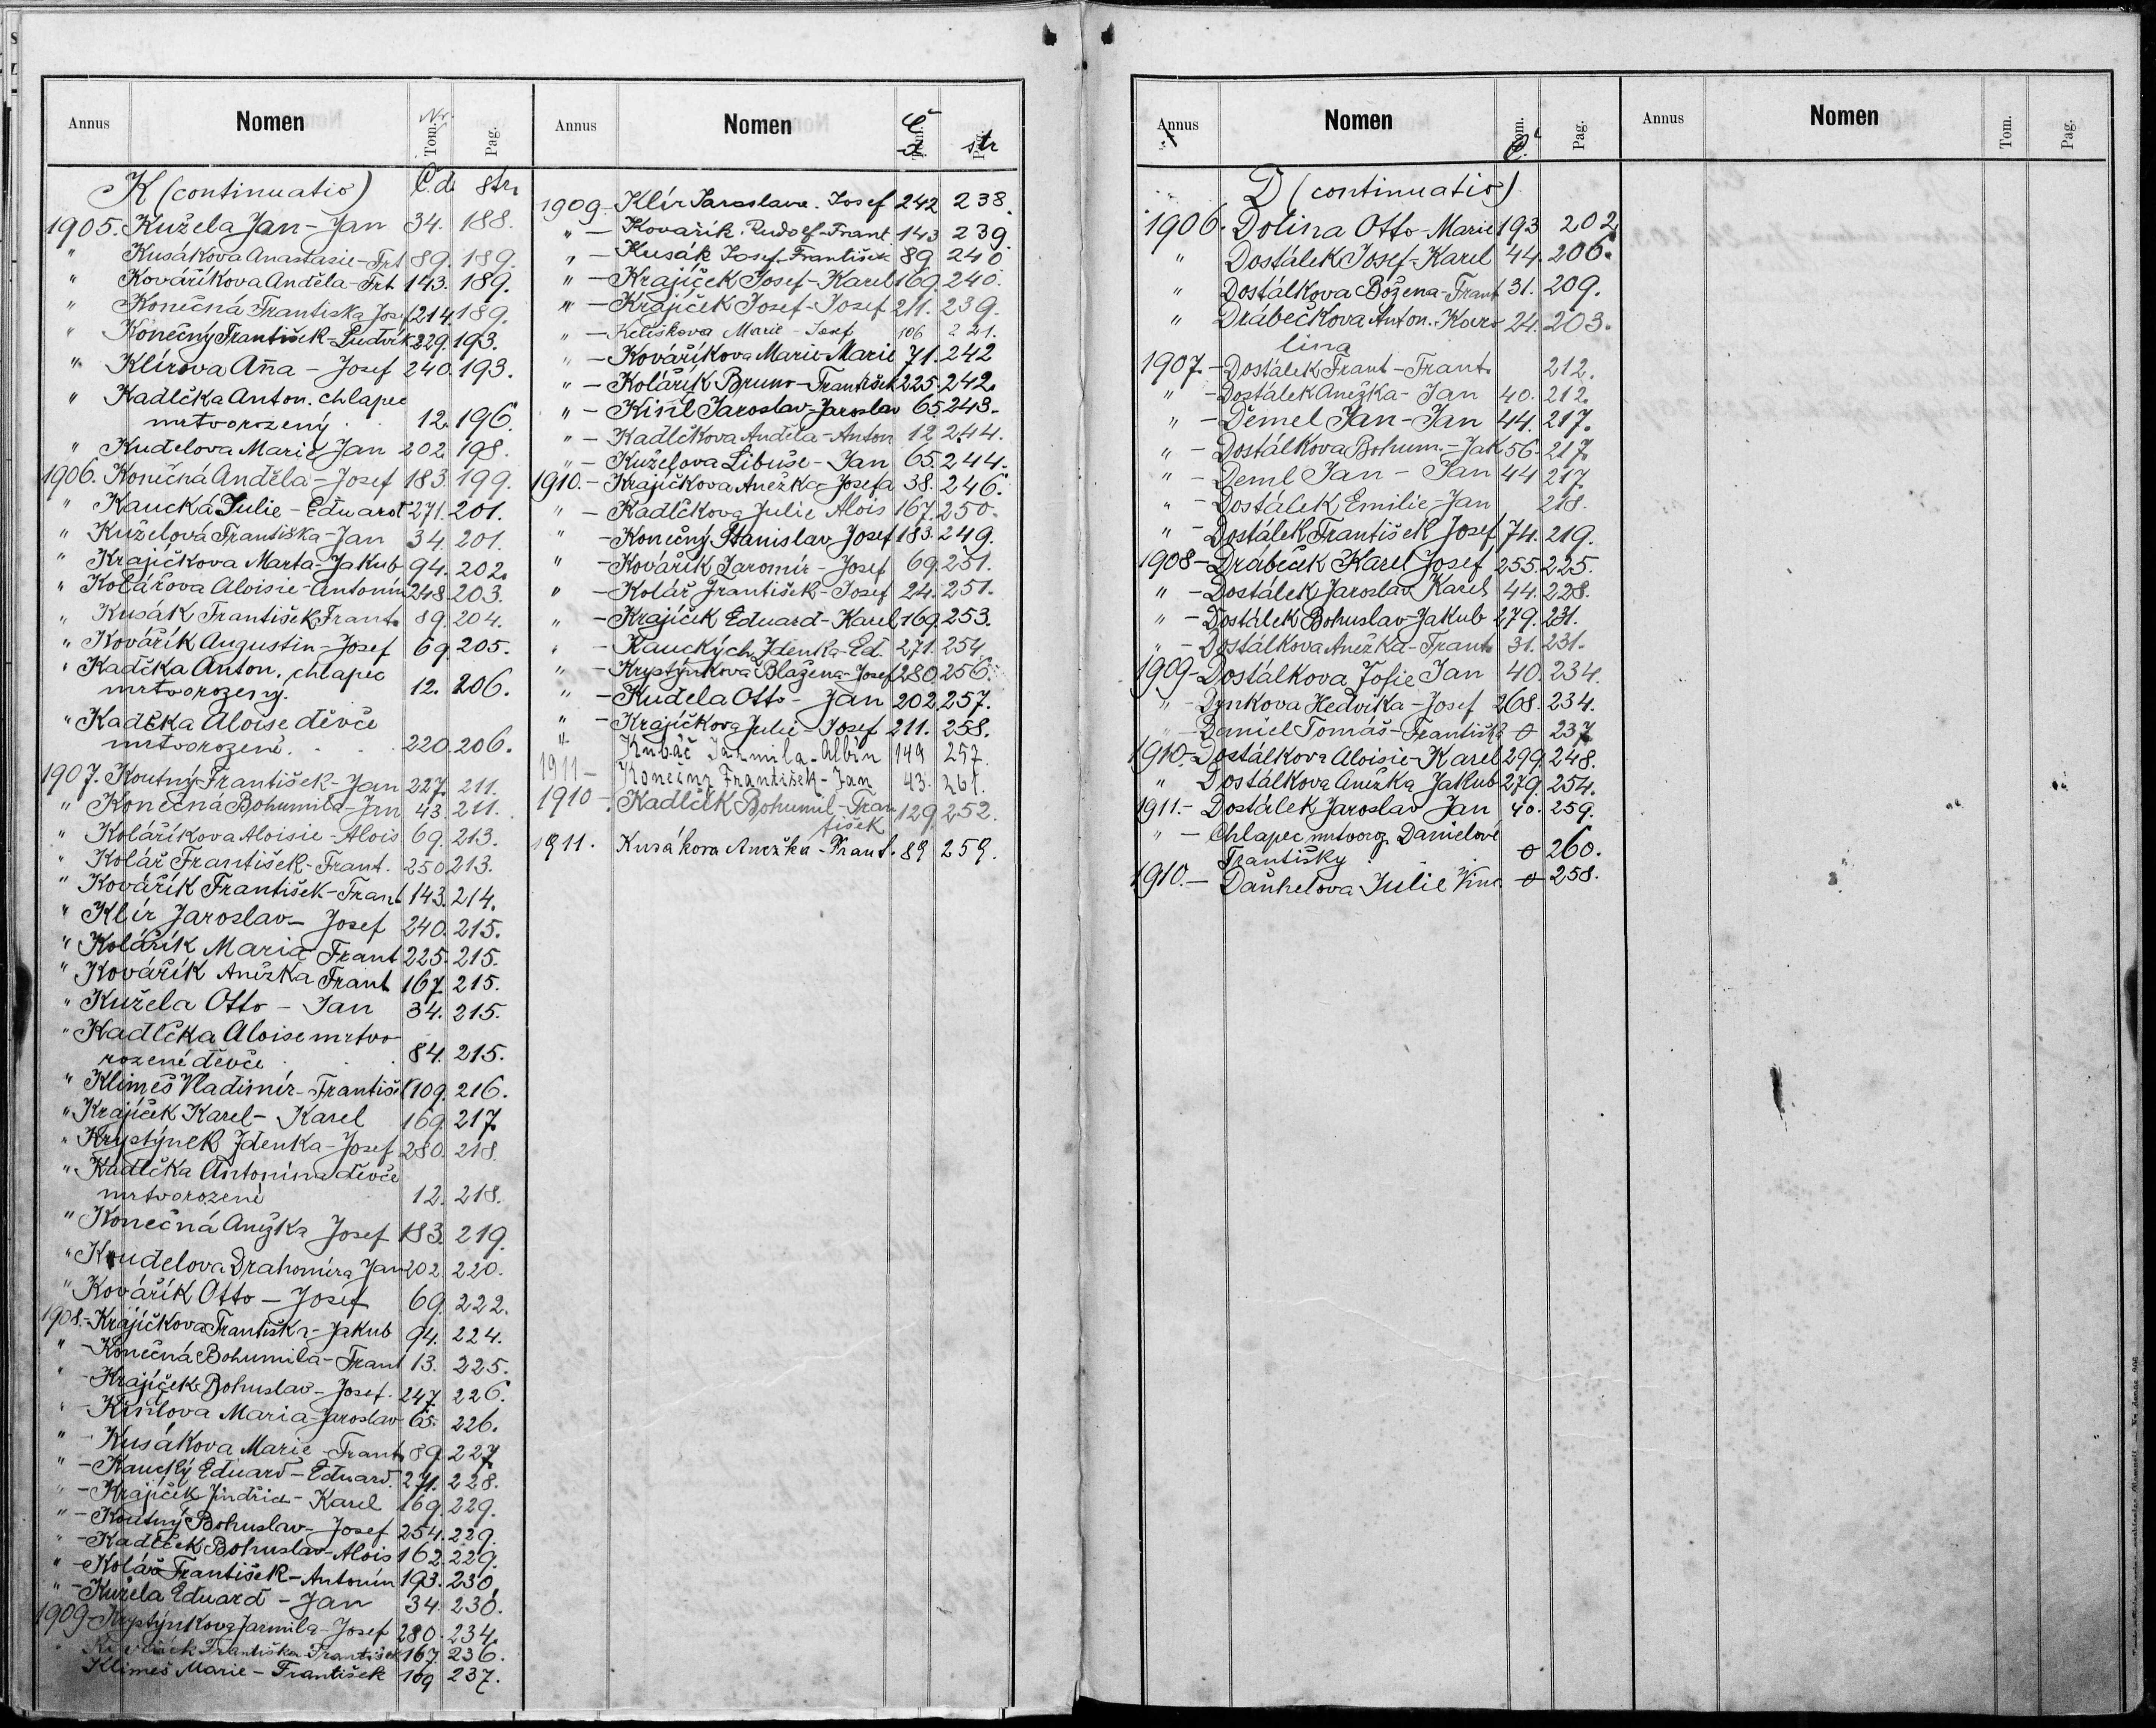 Annus Nomen Nr. Tom. Pag.
K (continuatio) Č.d. str.
1905. Kužela Jan - Jan 34. 188.
" Kusákova Anastasie - Frt 89. 189.
" Kováříkova Anděla - Frt 143. 189.
" Konečná Františka Jos 214. 189.
" Konečný František - Ludvík 229. 193.
" Klírova Aña - Josef 240. 193.
" Kadlčka Anton. chlapec
mrtvorozený 12. 196.
" Kudelova Marie Jan 202. 198.
1906. Konečná Anděla - Josef 183. 199.
" Kaucká Julie - Eduard 271. 201.
" Kuželová Františka - Jan 34. 201.
" Krajíčkova Marta - Jakub 94. 202.
" Kolářova Aloisie - Antonín 248. 203.
" Kusák František Frant. 89. 204.
" Kovářík Augustin - Josef 69. 205.
" Kadlčka Anton. chlapec
mrtvorozený. 12. 206.
" Kadlčka Aloise děvče
mrtvorozené. 220. 206.
1907. Koutný František - Jan 227. 211.
" Konečná Bohumila - Jan 43. 211.
" Kolaříkova Aloisie - Alois 69. 213.
" Kolář František - Frant. 250 213.
" Kovářík František - Frant 143. 214.
" Klír Jaroslav - Josef 240. 215.
" Kolářík Maria Frant 225. 215.
" Kovářík Anežka Frant 167. 215.
" Kužela Otto - Jan 34. 215.
" Kadlčka Aloise mrtvo-
rozené děvče 84. 215.
" Klimeš Vladimír - Františ 109. 216.
" Krajíček Karel - Karel 169. 217.
" Krystýnek Zdenka - Josef 280. 218.
" Kadlčka Antonína děvče
mrtvorozené 12. 218.
" Konečná Anežka Josef 183. 219.
" Kudelova Drahomíra Jan 202. 220.
" Kovářík Otto - Josef 69. 222.
1908. - Krajíčkova Františka - Jakub 94. 224.
" - Konečná Bohumila - Frant 13. 225.
" - Krajíček Bohuslav - Josef. 247. 226.
" - Kislova Maria - Jaroslav 65. 226.
" - Kusákova Marie - Frant. 89. 227.
" - Kaucký Eduard - Eduard. 271. 228.
" - Krajíček Jindřich - Karel 169. 229.
" - Koutný Bohuslav - Josef 254. 229.
" - Kadlček Bohuslav - Alois 162. 229.
" - Kolář František - Antonín 193. 230.
" - Kužela Eduard - Jan 34. 230.
1909 - Krystýnkova Jarmila - Josef 280. 234.
Františka František 167. 236.
Klimeš Marie - František 109 237.
Annus Nomen Č. d. Tom. Pag. str
1909 - Klír Jaroslava. Josef 242 238.
" - Kovařík. Rudolf - Frant 143 239.
" - Kusák Josef - František 89 240
" - Krajíček Josef - Karel 169. 240.
" - Krajíček Josef - Josef 211. 239.
" - Kelíškova Marie - Josef 106 221.
" - Kováříkova Marie - Marie 71. 242
" - Kolářík Bruno - František 225. 242.
" - Kisil Jaroslav - Jaroslav 65. 243.
" - Kadlčkova Anděla - Anton 12 244.
" - Kuželova Libuše - Jan 65. 244.
1910. - Krajíčkova Anežka Josefa 38. 246.
" - Kadlčkova Julie Alois 167. 250.
" - Konečný Stanislav Josef 183. 249.
" - Kovářík Jaromír - Josef 69. 251.
" - Kolář František - Josef 24. 251.
" - Krajíček Eduard - Karel 169. 253.
" - Kauckých Zdenka - Ed. 271. 254.
" - Krystýnkova Blažena - Josef 280. 256.
" - Kudela Otto - Jan 202. 257.
" - Krajíčkova Julie - Josef 211. 258.
" Kubáč Jarmila - Albín 149 257.
1911 - Konečný František - Jan 43. 261.
1910 - Kadlčik Bohumil - Fran-
tišek 129. 252.
1911. Kusákova Anežka - Frant. 89 259.
Annus Nomen Tom. Č. Pag.
D (continuatio)
1906. Dolina Otto - Marie 193 202
" Dostálek Josef - Karel 44. 206.
" Dostálkova Božena - Frant 31. 209.
" Drábečkova Anton. - Karo- 24. 203.
lina
1907 - Dostálek Frant - Frant. 212.
" - Dostálek Anežka - Jan 40. 212.
" - Demel Jan - Jan 44. 217.
" - Dostálkova Bohum. - Jak 56. 217.
" - Deml Jan - Jan 44 217
" - Dostálek Emilie - Jan 218.
" - Dostálek František Josef 74. 219.
1908 - Drábeček Karel Josef 255. 225.
" - Dostálek Jaroslav Karel 44. 228.
" - Dostálek Bohuslav - Jakub 279. 231.
" - Dostálkova Anežka - Frant. 31. 231.
1909 - Dostálkova Žofie Jan 40. 234.
" - Dynkova Hedvika - Josef 268. 234.
" - Daniel Tomáš - Františka 0 237.
1910. - Dostálkova Aloisie - Karel 299 248.
" Dostálkova Anežka Jakub 279. 254.
1911. - Dostálek Jaroslav Jan 40. 259.
" - Chlapec mrtvoroz. Danielové
Františky 0 260.
1910. - Daňhelova Julie Vinc. 0 258.
Annus Nomen Tom. Pag.